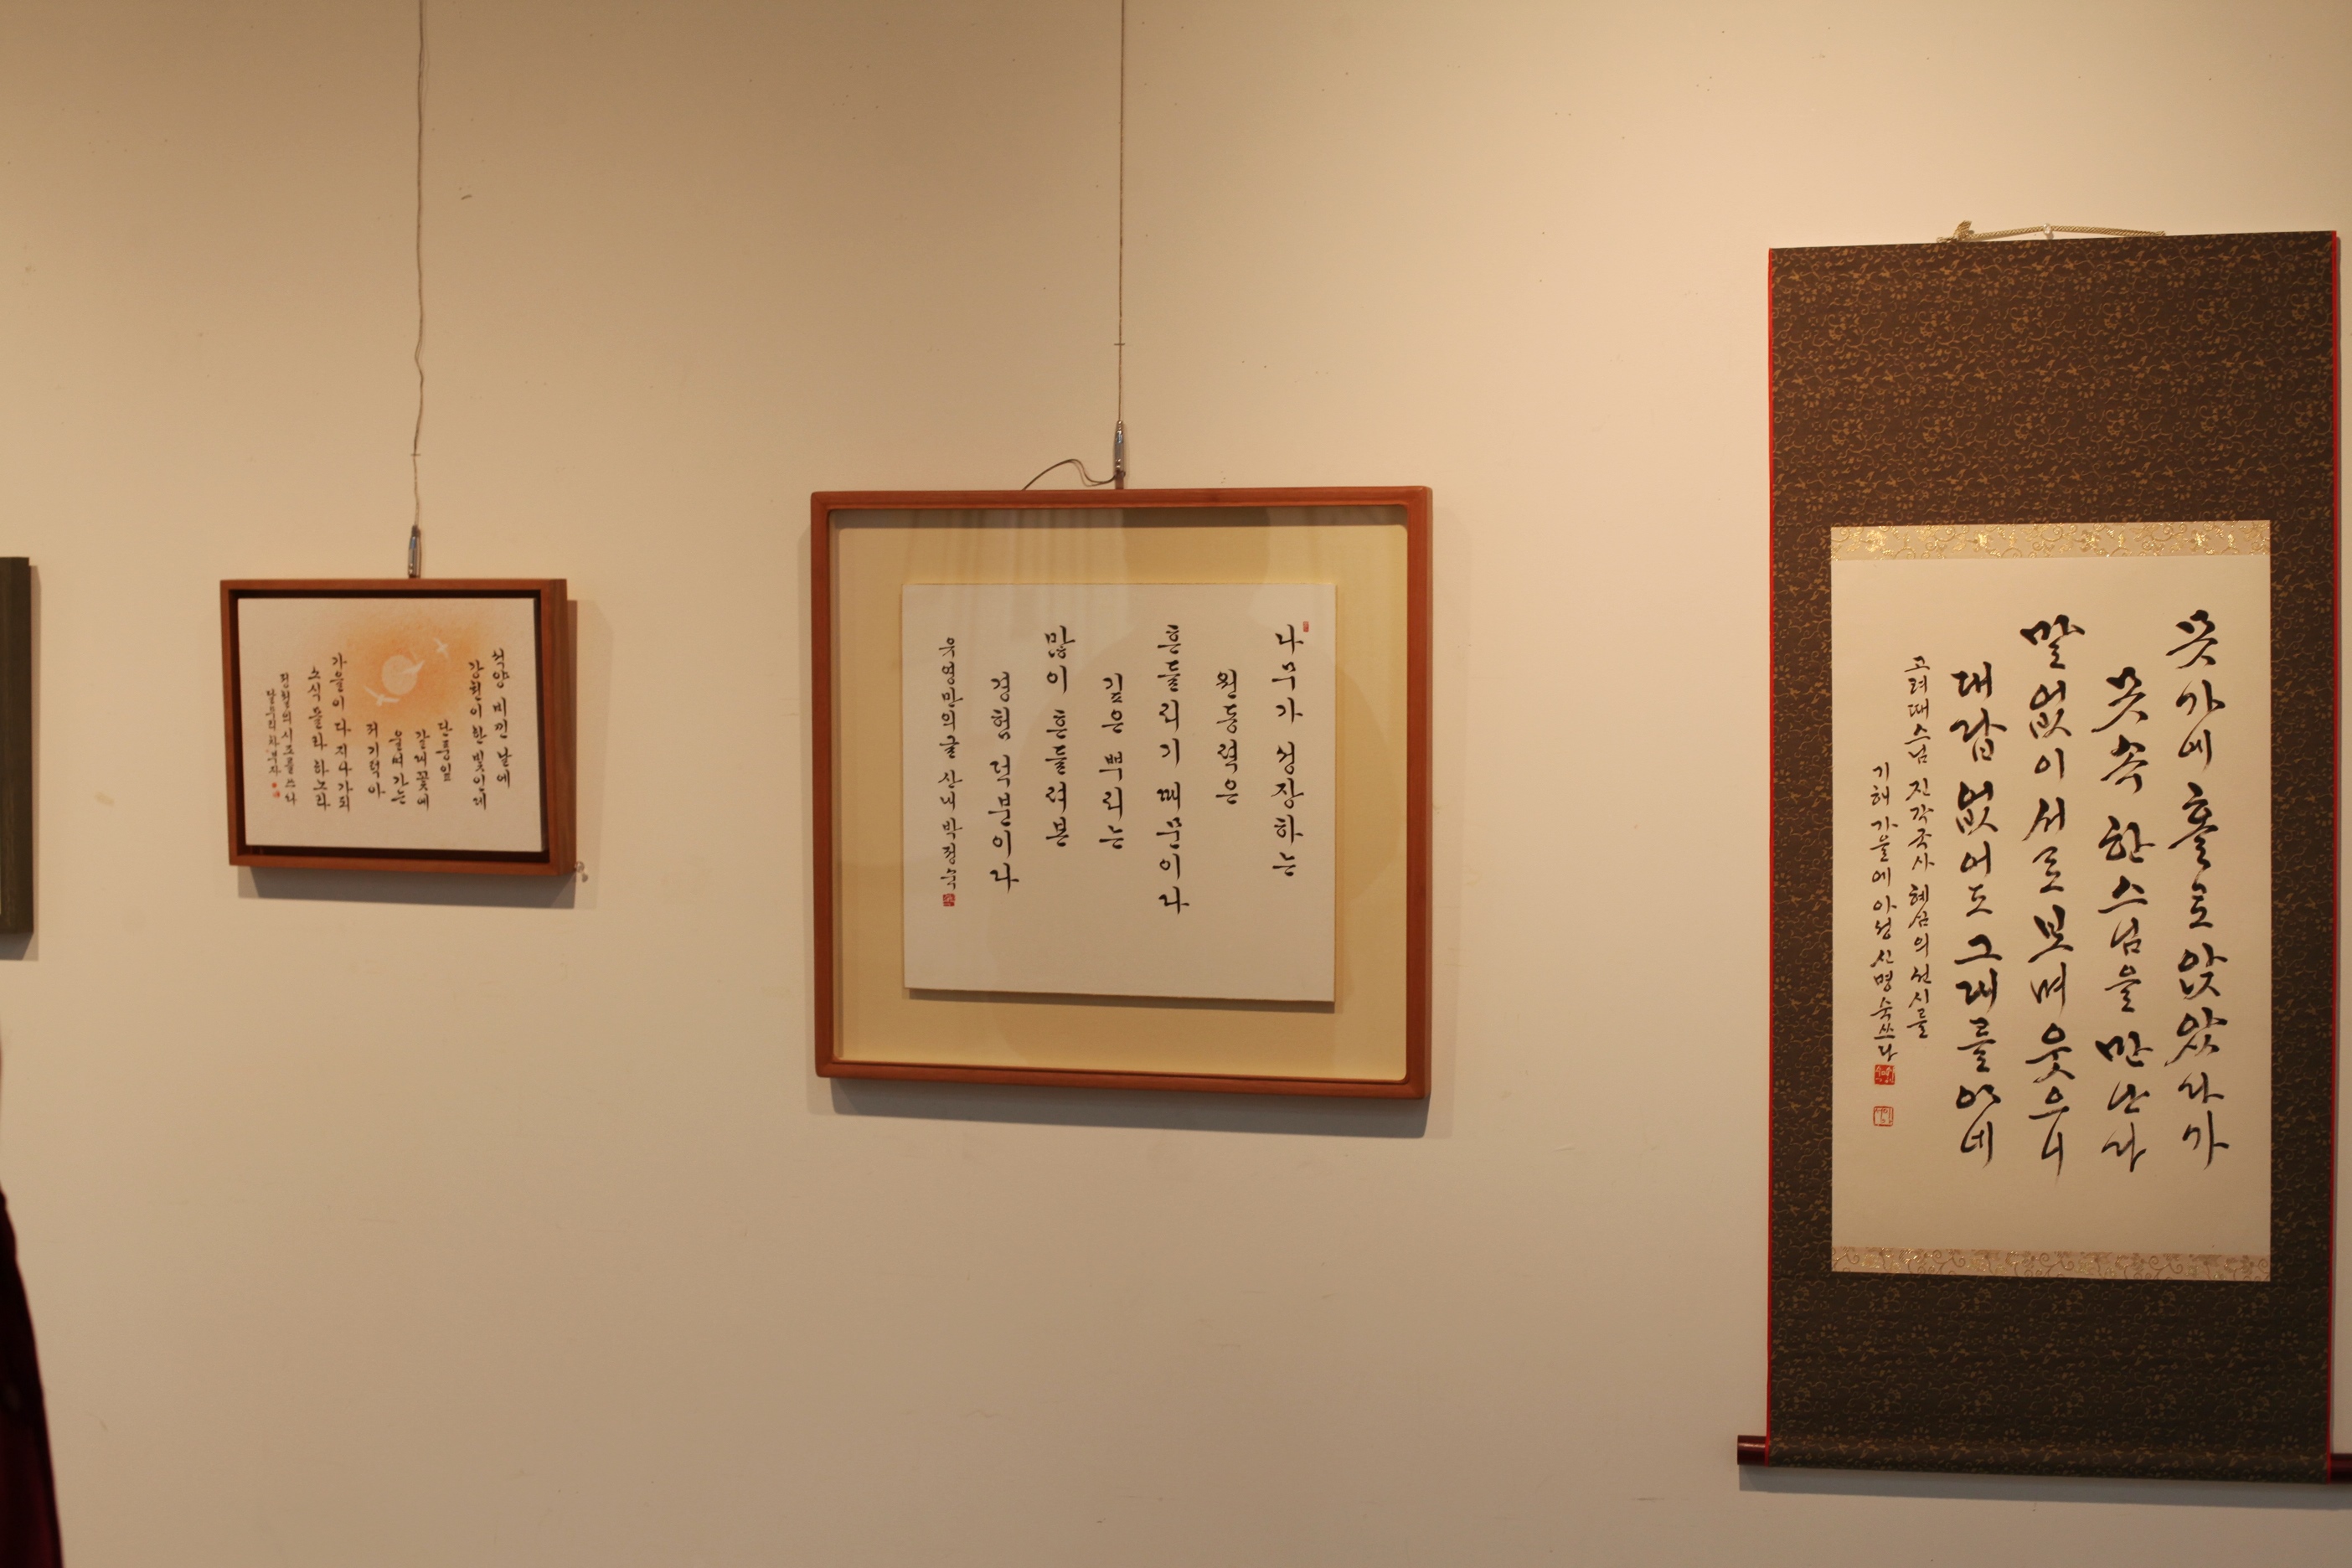 석양 비낀 날에
강천이 한 빛인제
단풍잎
갈의꽃에
울며 가는
저 기럭아
가을이 다 지나가되
소식 몰라 하노라
나무가 성장하는
원동력은
흔들리기 때문이다
깊은 뿌리는
많이 흔들려본
경험 덕분이다
유영만의 글 산내 박정숙
못가에 홀로 앉았다가
못속 한 스님을 만나다
말없이 서로 보며 웃으니
대답 없어도 그대를 아네
고려때 스님 진각국사 혜심의 선시를
기해 가을에 아성 신명숙 쓰다